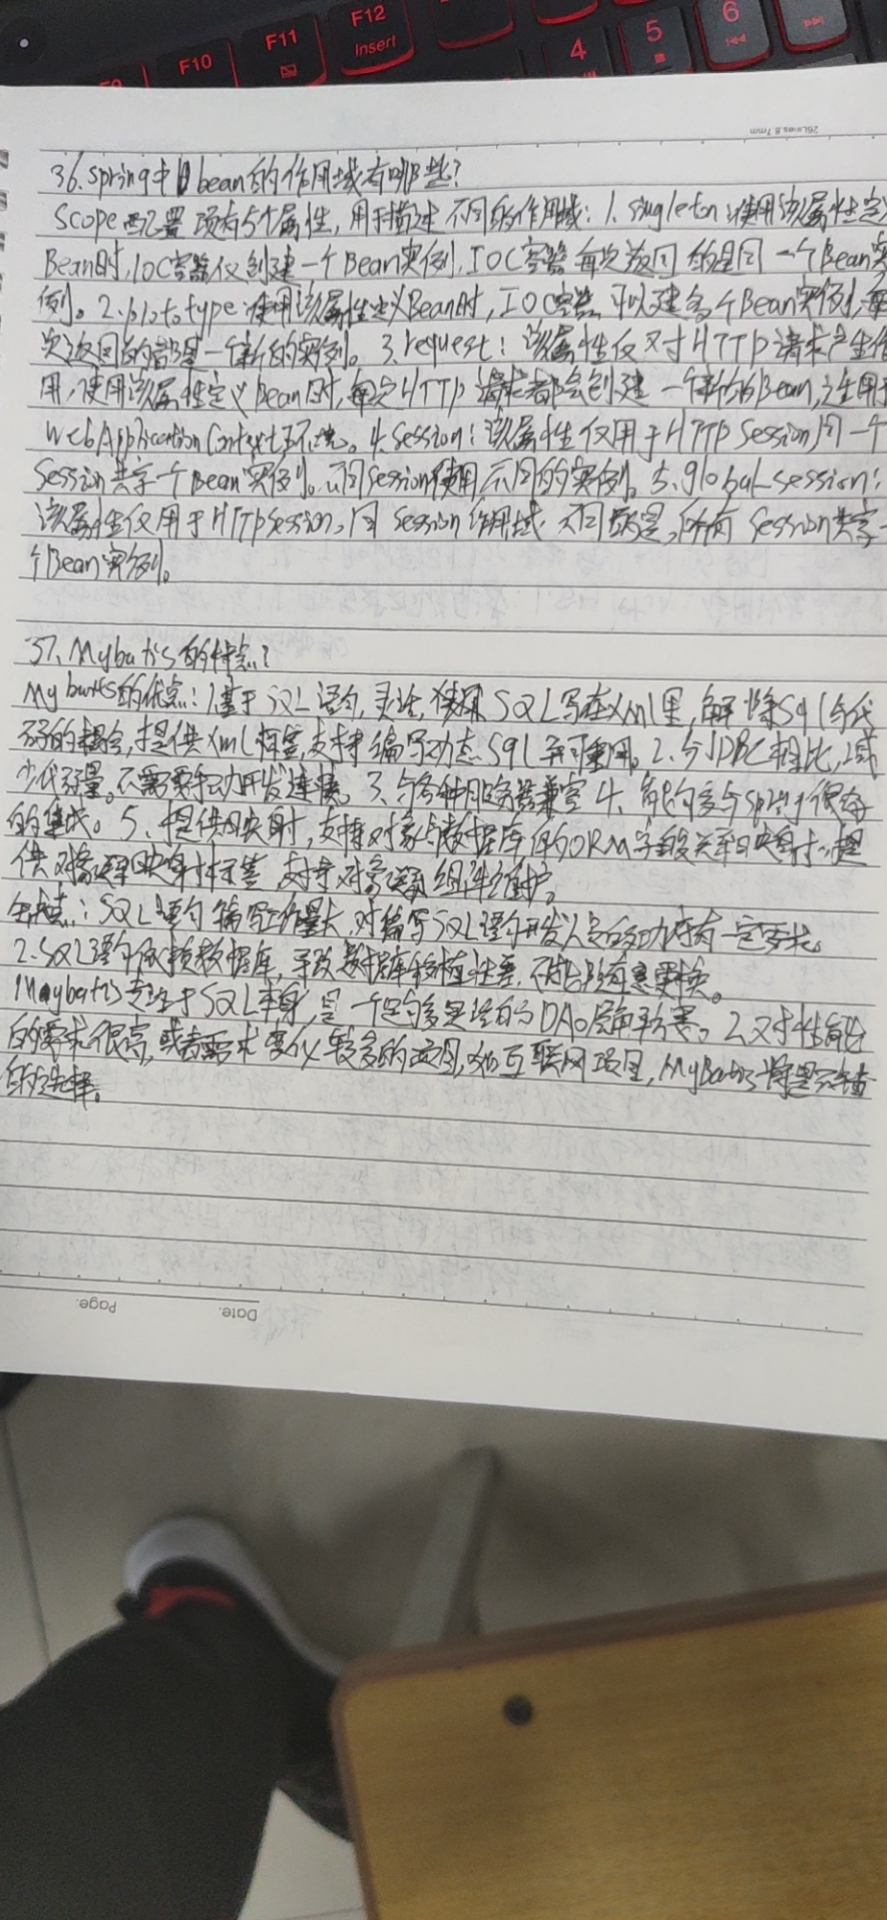 F9
F10
F11
F12
Insert
4
5
6
26Lines.8.7mm
36.Spring中bean的作用域有哪些?
Scope配置项有5个属性,用于描述不同的作用域:1.singleton:使用该属性定义
Bean时,IOC容器仅创建一个Bean实例,IOC容器每次返回的是同一个Bean实
例。2.prototype:使用该属性定义Bean时,IOC容器可以建多个Bean实例,每
次返回的都是一个新的实例。3.request:该属性仅对HTTP请求产生作
用,使用该属性定义Bean时,每次HTTP请求都会创建一个新的Bean,适用于
WebApplicationContext环境。4.Session:该属性仅用于HTTP Session,同一个
Session共享一个Bean实例。不同Session使用不同的实例。5.global-session:
该属性仅用于HTTPSession,同Session作用域不同的是,所有Session共享一
个Bean实例。
37.Mybatis的特点?
Mybatis的优点:1.基于SQL语句,灵活,SQL写在xml里,解除sql与代
码的耦合,提供xml标签,支持编写动态Sql并可重用。2.与JDBC相比,减
少代码量。不需要手动开发连接。3.与各种服务器兼容4.能够与Spring很好
的集成。5.提供映射,支持对象与数据库的ORM字段关系映射;提
供对象关系映射标签,支持对象关系组件维护。
缺点:SQL语句编写工作量大,对编写SQL语句开发人员的功底有一定要求。
2.SQL语句依赖数据库,导致数据库移植性差,不能随意更换。
Mybatis专注于SQL本身,是一个足够灵活的DAO层解决方案。2.对性能
的需求很高,或者需求变化较多的项目,如互联网项目,MyBatis将是不错
的选择。
Date.
Page.